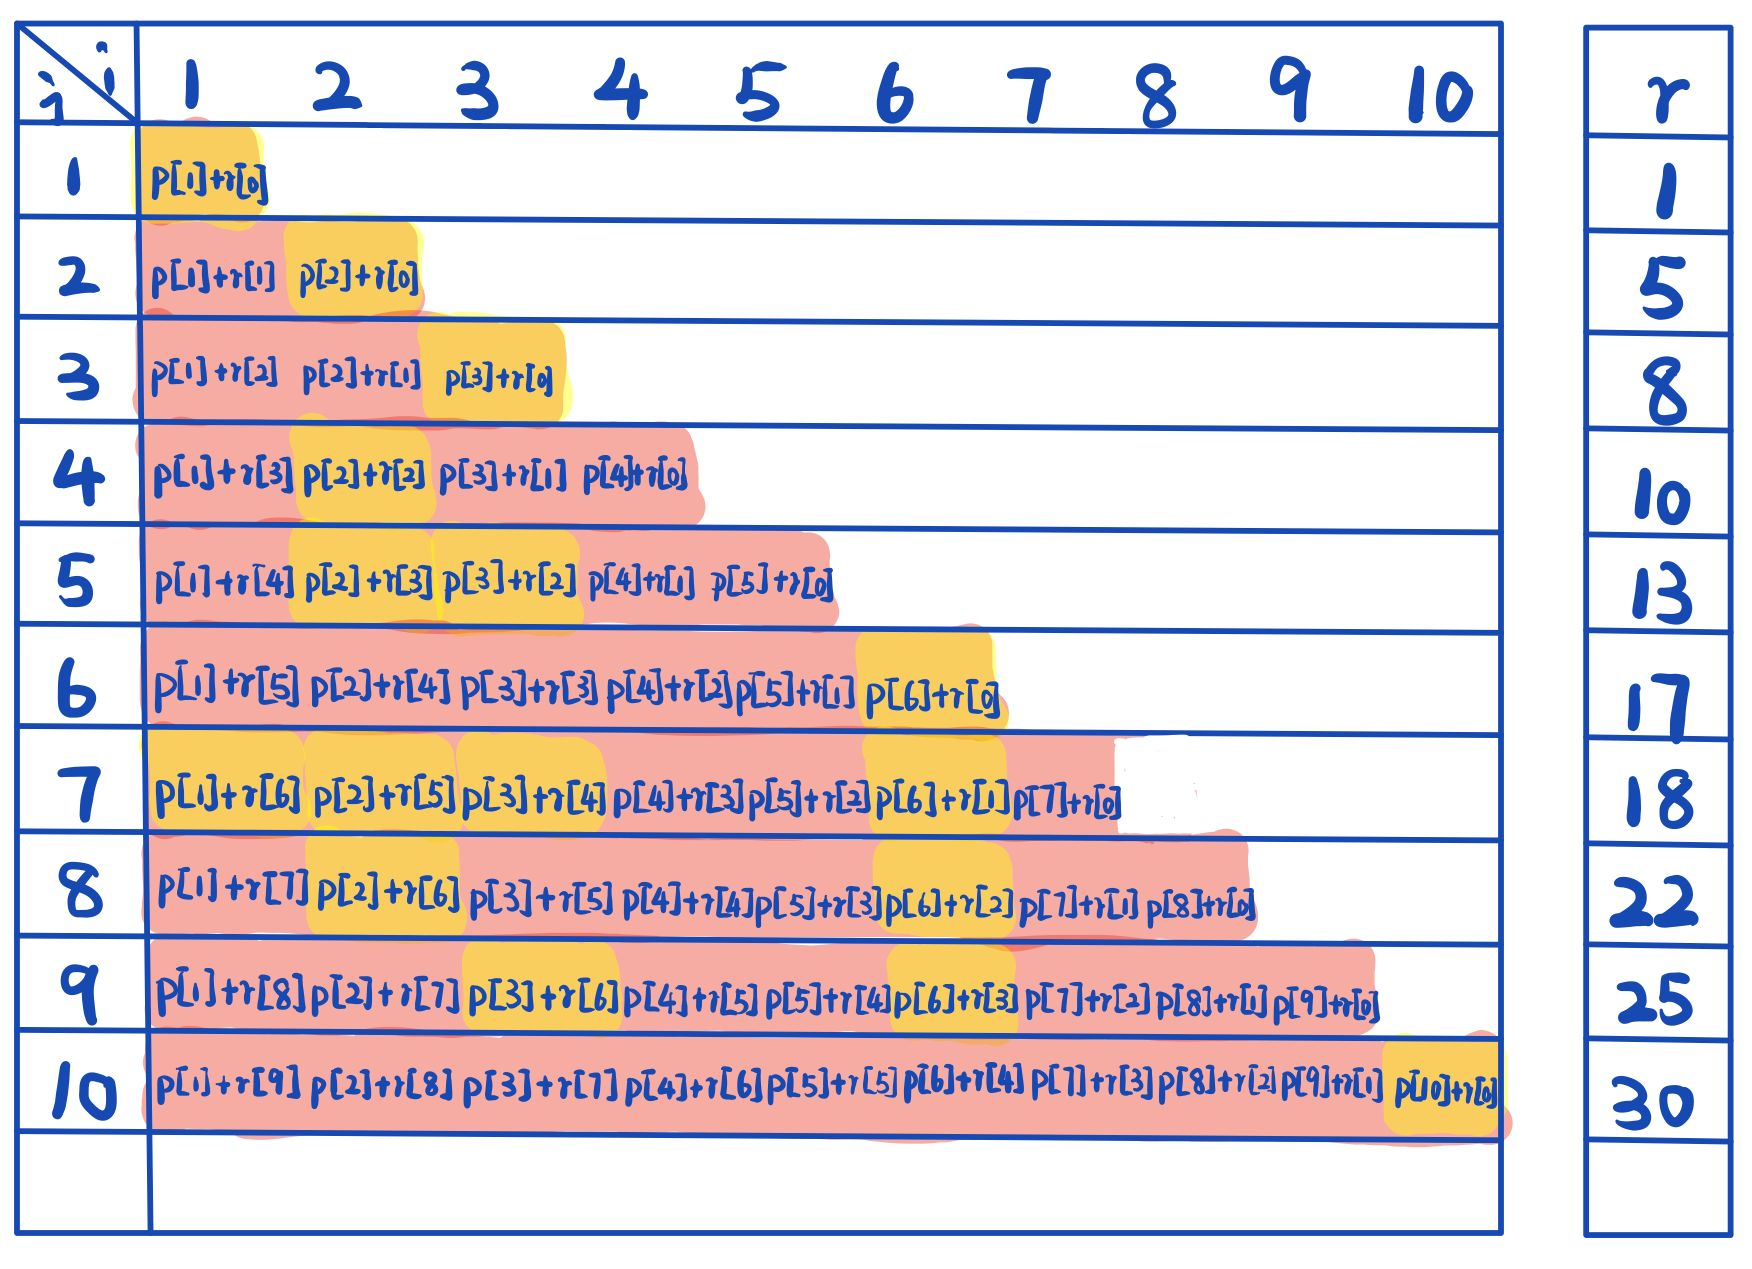 i 1 2 3 4 5 6 7 8 9 10 r
j
1 p[1]+r[0] 1
2 p[1]+r[1] p[2]+r[0] 5
3 p[1]+r[2] p[2]+r[1] p[3]+r[0] 8
4 p[1]+r[3] p[2]+r[2] p[3]+r[1] p[4]+r[0] 10
5 p[1]+r[4] p[2]+r[3] p[3]+r[2] p[4]+r[1] p[5]+r[0] 13
6 p[1]+r[5] p[2]+r[4] p[3]+r[3] p[4]+r[2] p[5]+r[1] p[6]+r[0] 17
7 p[1]+r[6] p[2]+r[5] p[3]+r[4] p[4]+r[3] p[5]+r[2] p[6]+r[1] p[7]+r[0] 18
8 p[1]+r[7] p[2]+r[6] p[3]+r[5] p[4]+r[4] p[5]+r[3] p[6]+r[2] p[7]+r[1] p[8]+r[0] 22
9 p[1]+r[8] p[2]+r[7] p[3]+r[6] p[4]+r[5] p[5]+r[4] p[6]+r[3] p[7]+r[2] p[8]+r[1] p[9]+r[0] 25
10 p[1]+r[9] p[2]+r[8] p[3]+r[7] p[4]+r[6] p[5]+r[5] p[6]+r[4] p[7]+r[3] p[8]+r[2] p[9]+r[1] p[10]+r[0] 30